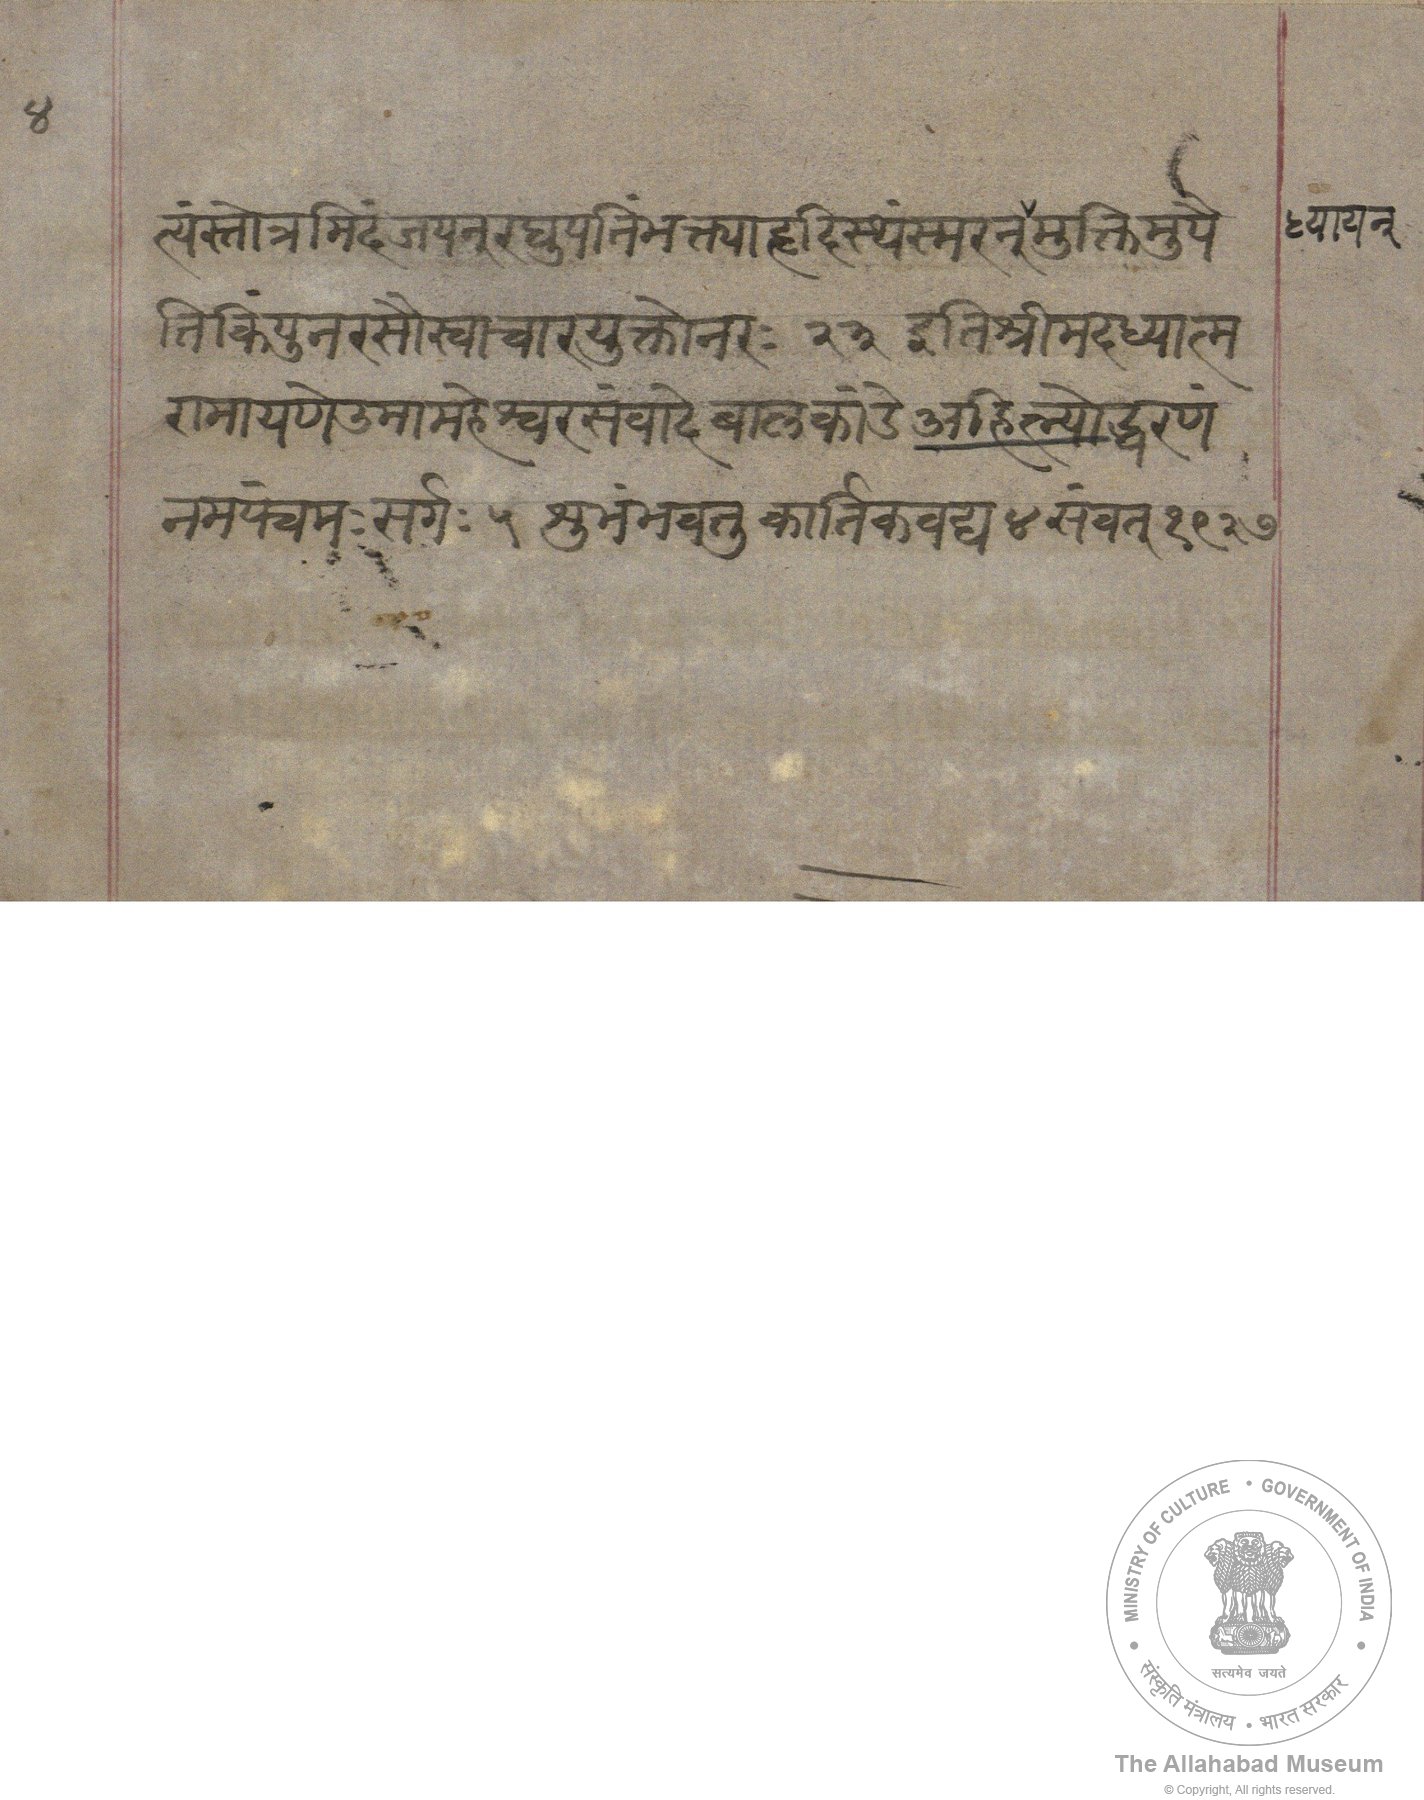 ४
त्यंस्तोत्रमिदंजपन्रघुपतिंभक्त्याहृदिस्थंस्मरन्मुक्तिमुपै
ध्यायन्
तिकिंपुनरसौस्वाचारयुक्तोनरः २३ इतिश्रीमदध्यात्म
रामायणेउमामहेश्वरसंवादेबालकांडेअहिल्योद्धरणं
नमपंचमः सर्गः ५ शुभंभवतु कार्तिकवद्य ४ संवत् १९२७
MINISTRY OF CULTURE • GOVERNMENT OF INDIA
सत्यमेव जयते
संस्कृति मंत्रालय • भारत सरकार
The Allahabad Museum
© Copyright, All rights reserved.